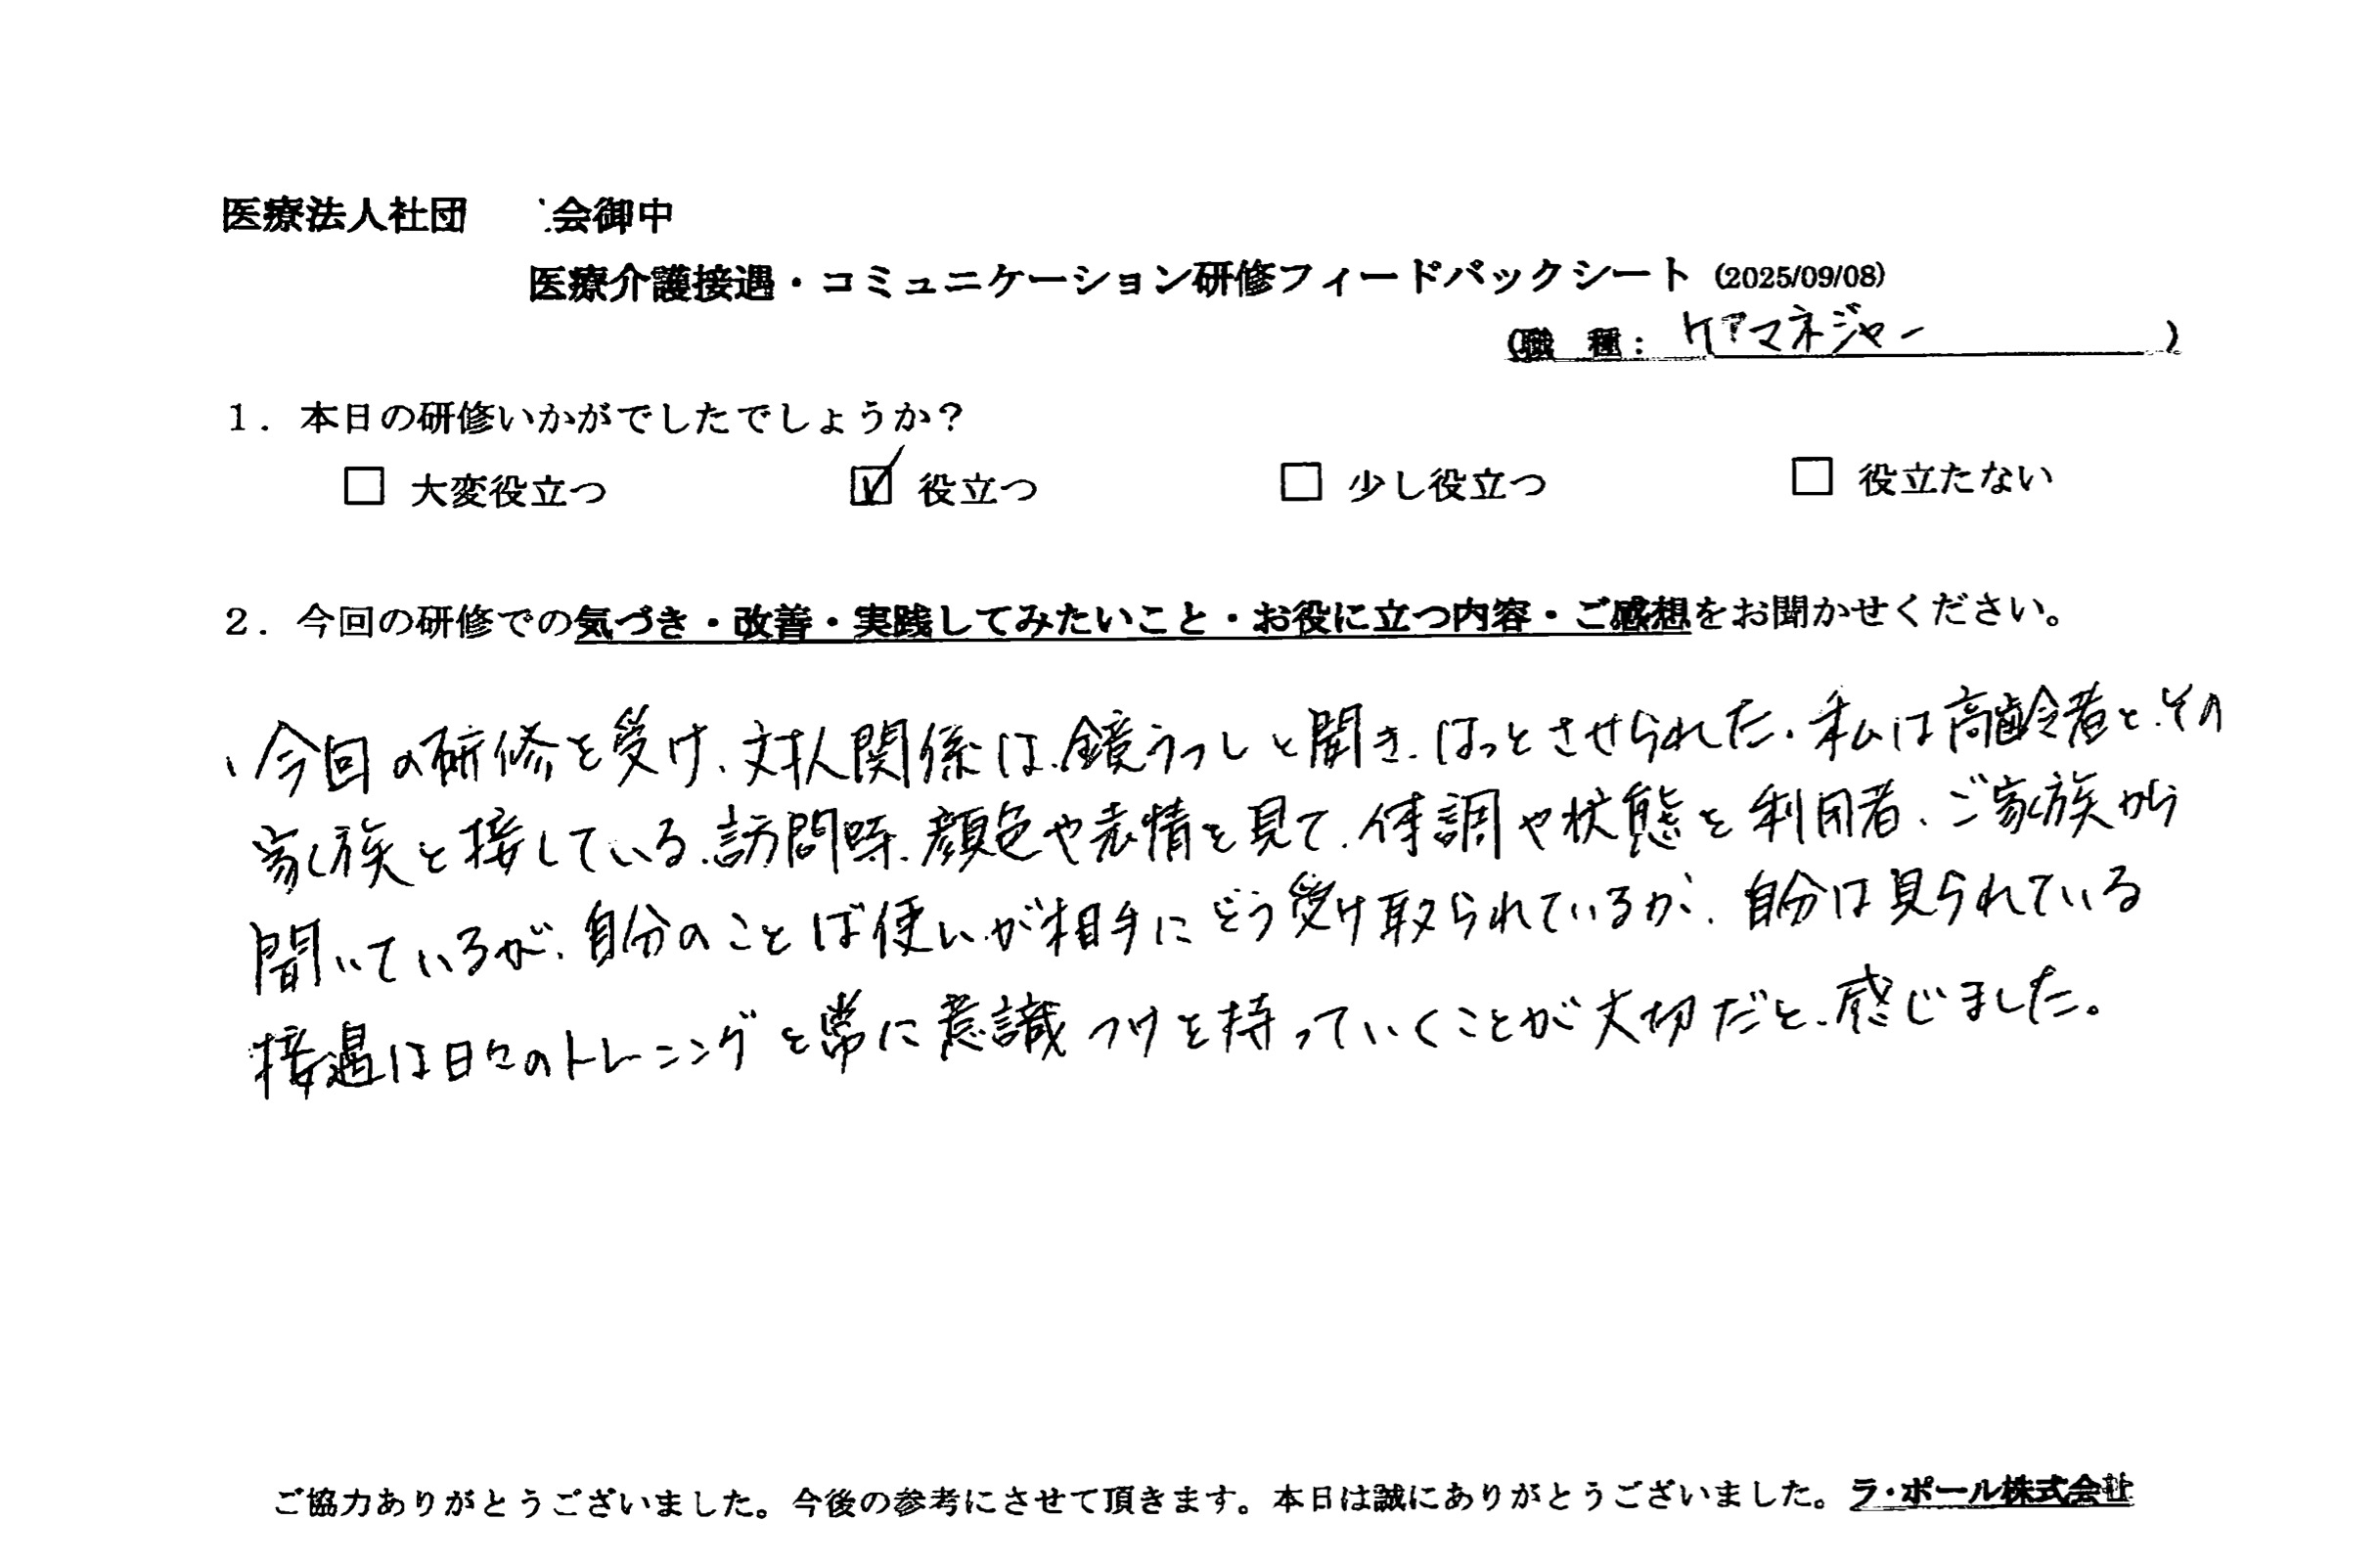 医療法人社団　　会御中
医療介護接遇・コミュニケーション研修フィードバックシート (2025/09/08)
(職　種： ケアマネジャー )
１．本日の研修いかがでしたでしょうか？
□ 大変役立つ　☑ 役立つ　□ 少し役立つ　□ 役立たない
２．今回の研修での気づき・改善・実践してみたいこと・お役に立つ内容・ご感想をお聞かせください。
、今回の研修を受け、対人関係は、鏡うつしと聞き、はっとさせられた。私は高齢者と、その
家族と接している。訪問時、顔色や表情を見て、体調や状態を利用者、ご家族から
聞いているが、自分のことば使いが相手にどう受け取られているか、自分は見られている
接遇は日々のトレーニングと常に意識づけを持っていくことが大切だと、感じました。
ご協力ありがとうございました。今後の参考にさせて頂きます。本日は誠にありがとうございました。ラ・ポール株式会社